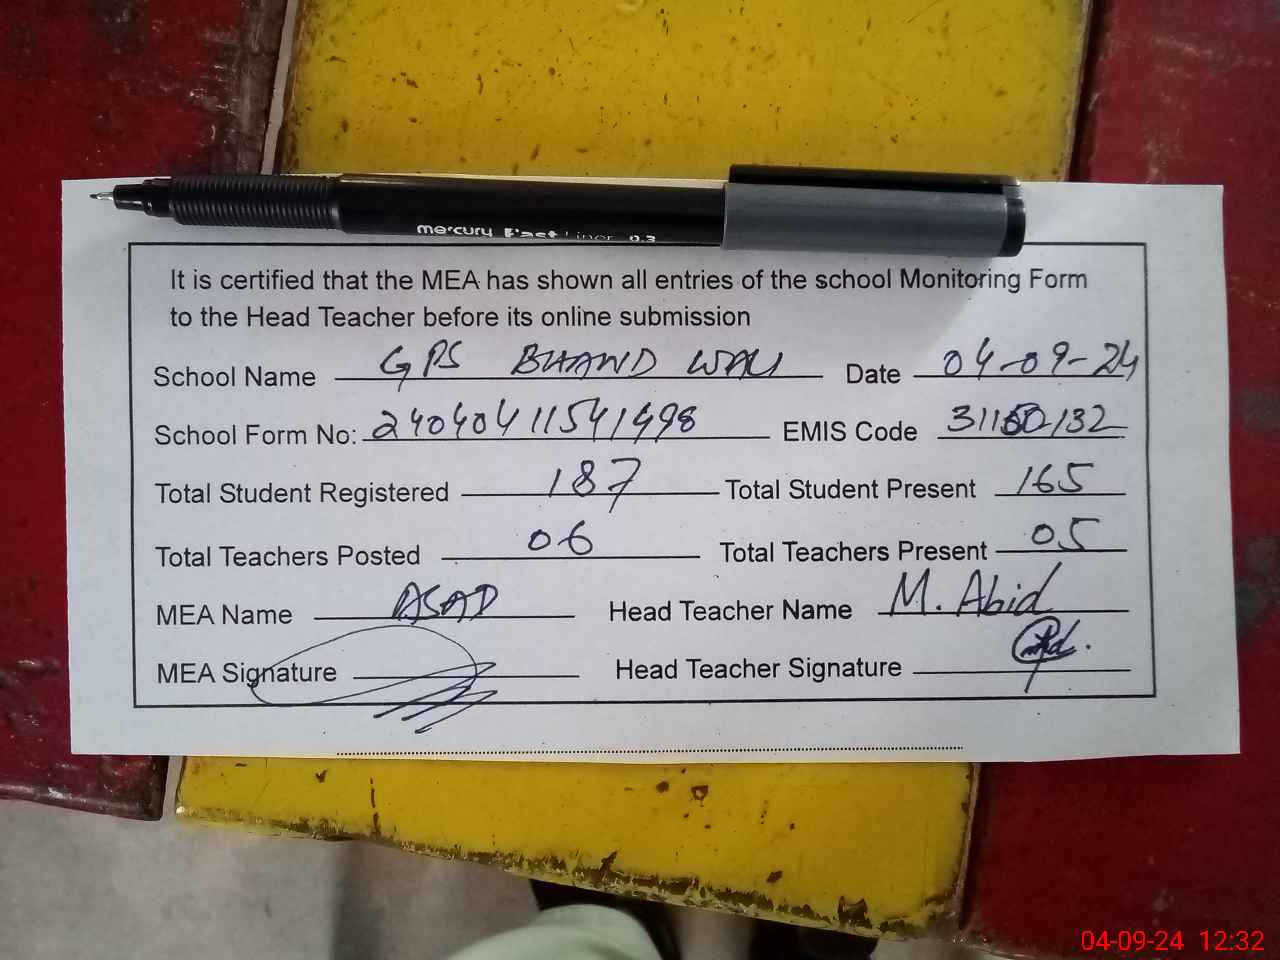 mercury Fast Liner 0.3
It is certified that the MEA has shown all entries of the school Monitoring Form
to the Head Teacher before its online submission
School Name GPS BHAND WALI Date 04-09-24
School Form No: 24040411541498 EMIS Code 31150132
Total Student Registered 187 Total Student Present 165
Total Teachers Posted 06 Total Teachers Present 05
MEA Name ASAD Head Teacher Name M. Abid
MEA Signature Head Teacher Signature
04-09-24 12:32